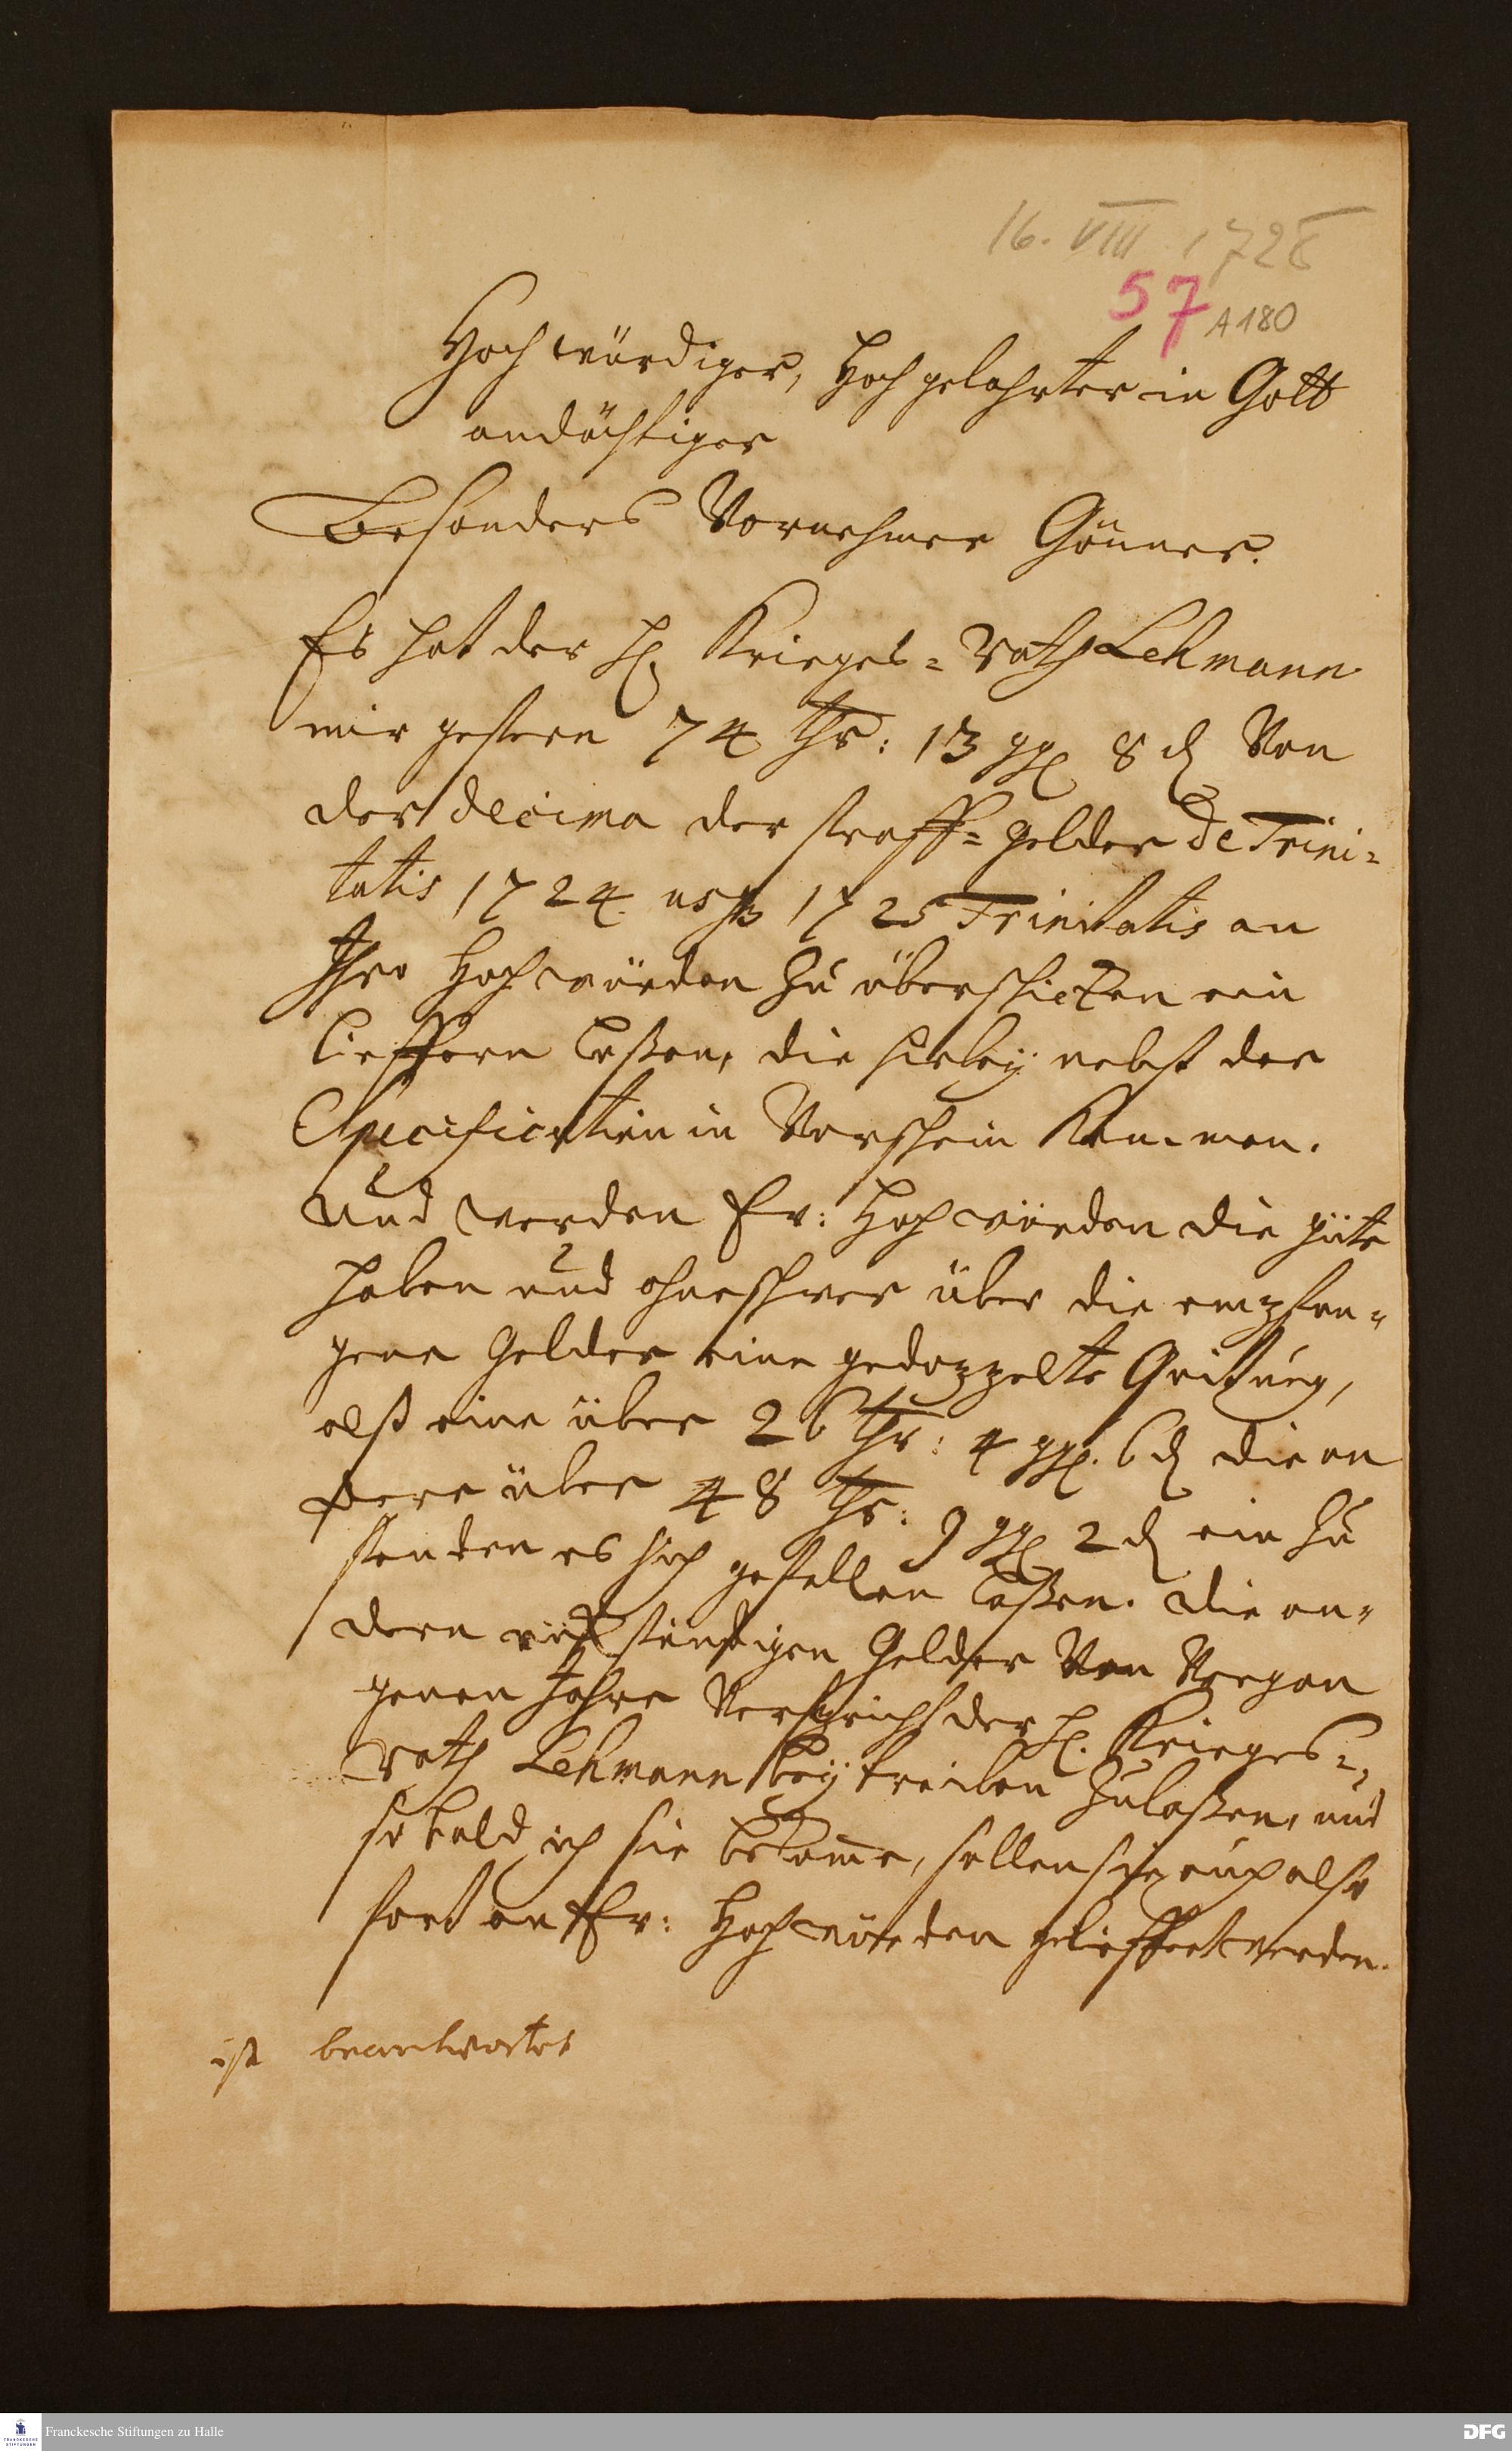 16. VIII 1728
57 A 180
Hochwürdiger, Hochgelahrter in Gott
andächtiger
Besonders Vornehmer Gönner.
Es hat der H. Krieges-Rath Lehmann
mir gestern 74 thr: 13 ggl 8 d Von
der decima der straff-gelder de Trini-
tatis 1724. usq 1725 Trinitatis an
Ihro Hochwürden zu überschicken ein
lieffern laßen, die hirbey nebst der
Specification in Vorschein kommen.
Und werden Ew: Hochwürden die güte
haben und ohneschwer über die empfan-
gene Gelder eine gedoppelte Quitung,
alß eine über 26 thr: 4 ggl. 6 d die an
dere über 48 thr: 9 ggl 2 d ein zu
senden es sich gefallen laßen. die an-
dern rückständigen Gelder Von Vergan
genen Jahre Verspricht der H. Krieges-
rath Lehmann bey treiben zulaßen, und
so bald ich sie bekome, sollen sie auch also
fort an Ew: Hochwürden gelieffert werden.
ist beantwortet
Franckesche Stiftungen zu Halle
FRANCKESCHE STIFTUNGEN
DFG